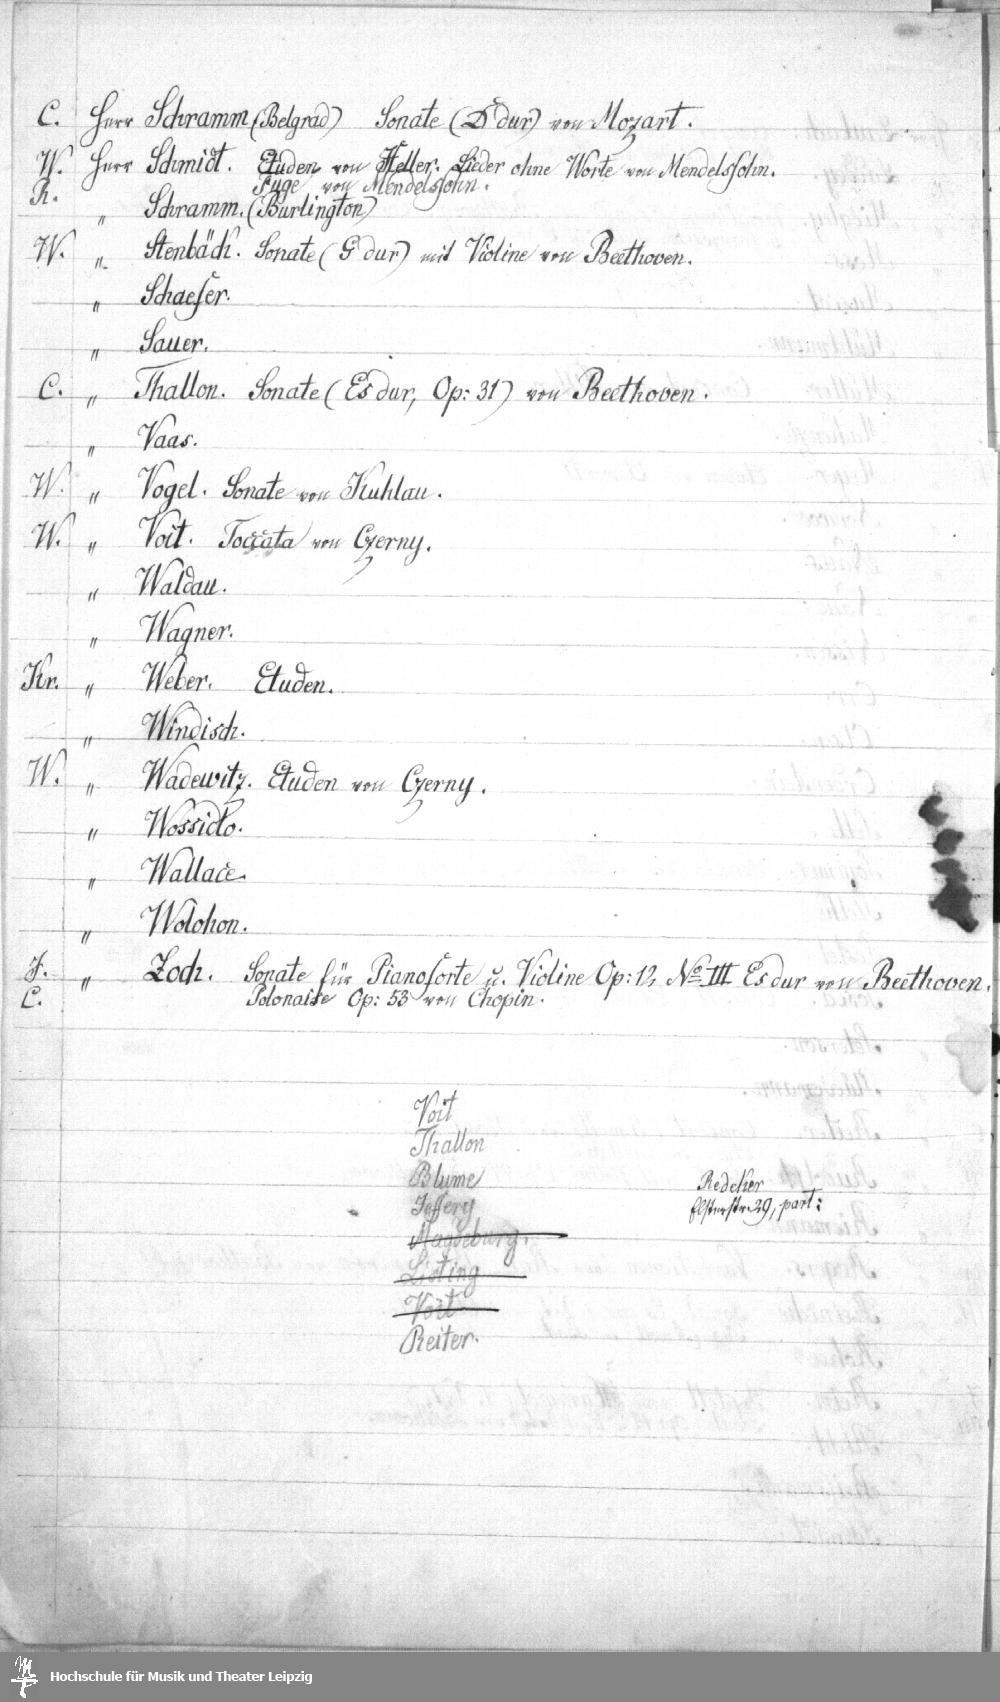 C. Herr Schramm (Belgrad) Sonate (D dur) von Mozart.
W. Herr Schmidt. Etuden von Heller. Lieder ohne Worte von Mendelssohn.
R. Fuge von Mendelssohn.
" Schramm. (Burlington)
W. " Stenbäck. Sonate (G dur) mit Violine von Beethoven.
" Schaefer.
" Sauer.
C. " Thallon. Sonate (Es dur, Op: 31) von Beethoven.
" Vaas.
W. " Vogel. Sonate von Kuhlau.
W. " Voit. Toccata von Czerny.
" Waldau.
" Wagner.
Kr. " Weber. Etuden.
" Windisch.
W. " Wadewitz. Etuden von Czerny.
" Wossidlo.
" Wallace.
" Wolohon.
F. " Zoch. Sonate für Pianoforte u. Violine Op: 12, No III Es dur von Beethoven.
C. Polonaise Op: 53 von Chopin.
Voit
Thallon
Blume
Jeffery
Magdeburg.
Listing
Voit
Reiter.
Redeker
Elsterstr. 29, part:
Hochschule für Musik und Theater Leipzig